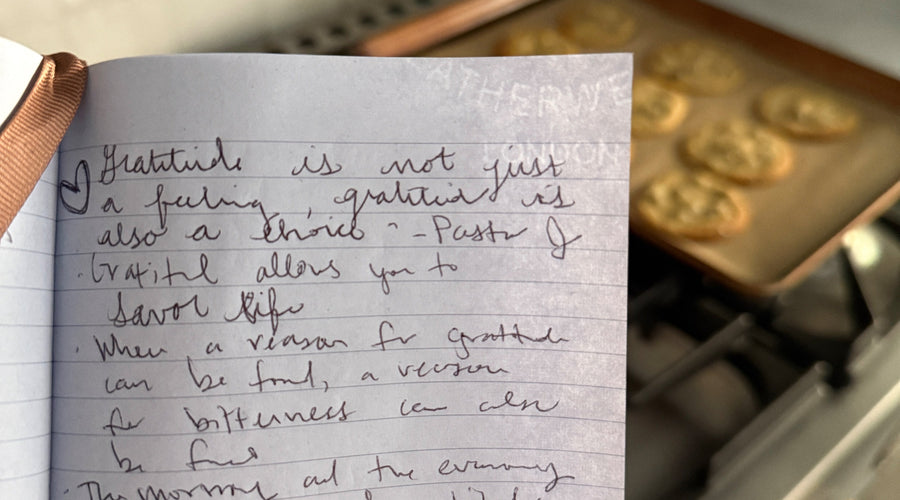 ATHERINE
LONDON
Gratitude is not just
a feeling, gratitude is
also a choice" - Pastor J
· Gratitu allows you to
savor life
· When a reason for gratitude
can be found, a reason
for bitterness can also
be found
· The morning and the evening